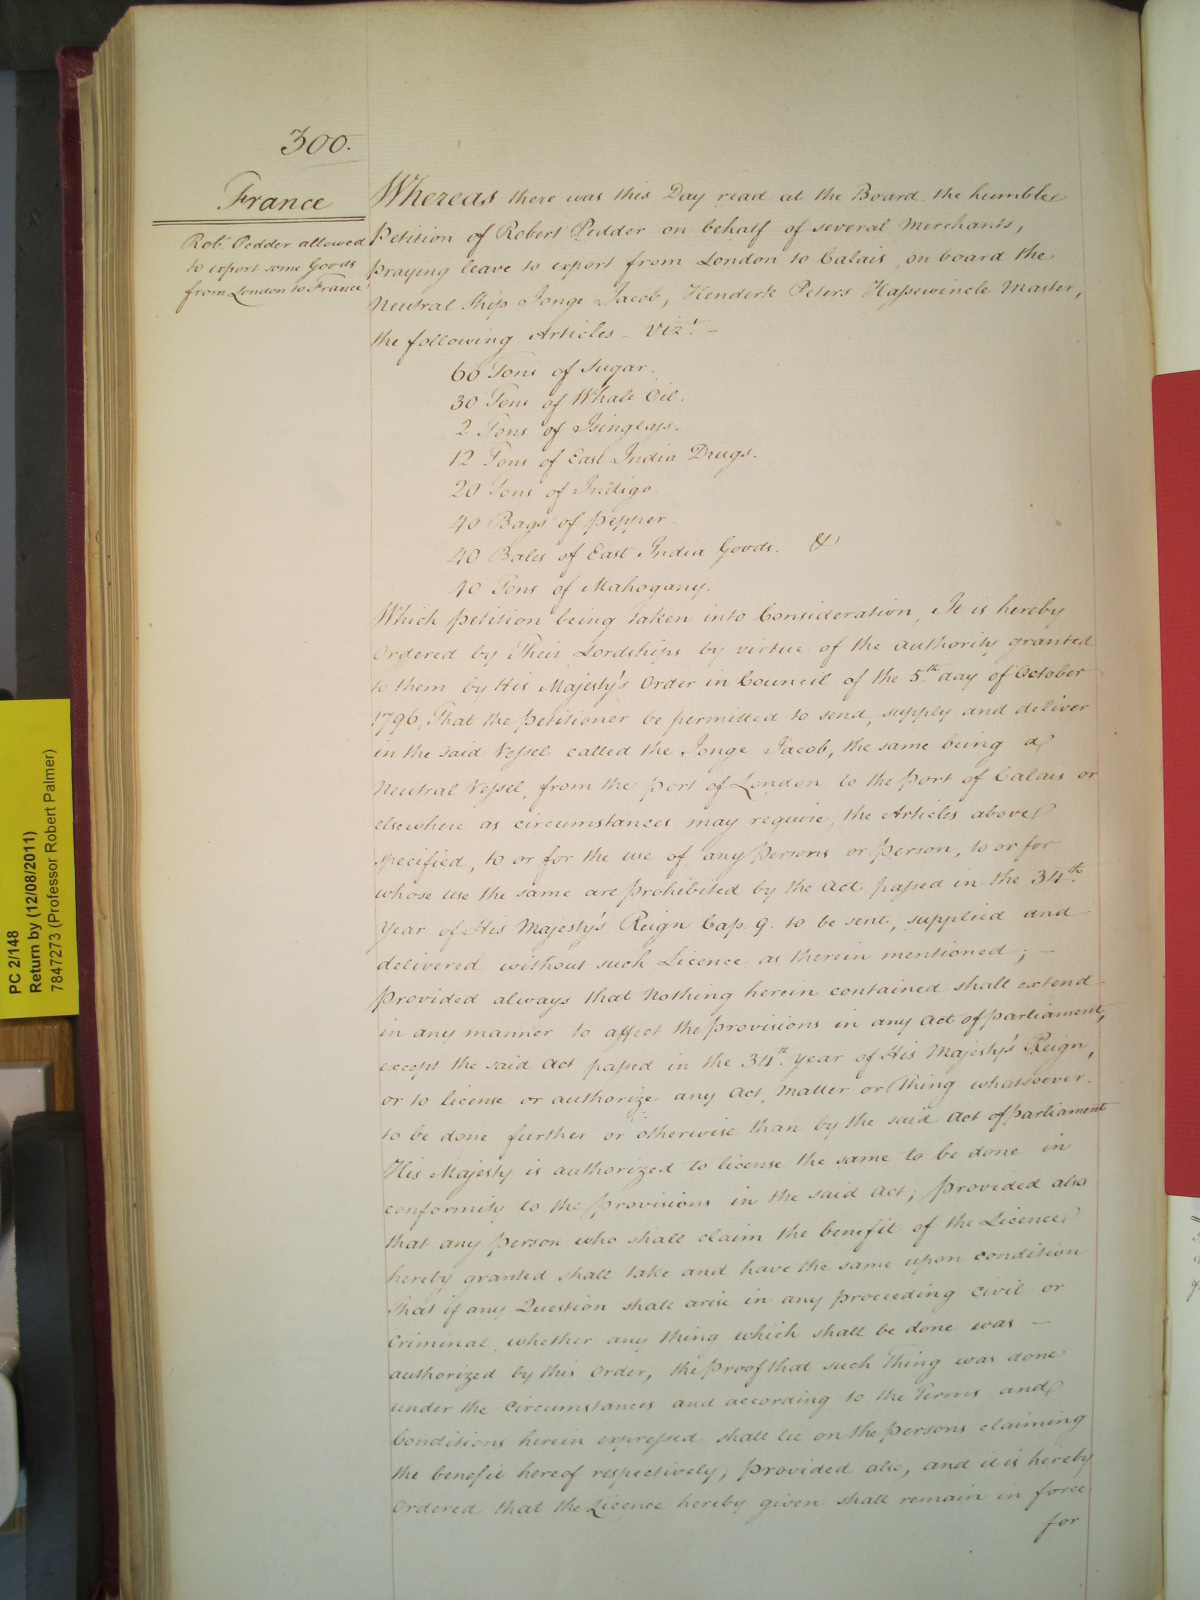 300.
France
Robt. Pedder allowed
to export some Goods
from London to France
Whereas there was this Day read at the Board the humble
Petition of Robert Pedder on behalf of several Merchants,
praying leave to export from London to Calais on board the
Neutral Ship Jonge Jacob, Henderk Peters Hassewincle Master,
the following Articles - Vizt. -
60 Tons of Sugar.
30 Tons of Whale Oil.
2 Tons of Isinglass.
12 Tons of East India Drugs.
20 Tons of Indigo
40 Bags of pepper
40 Bales of East India Goods. &
40 Tons of Mahogany.
Which petition being taken into Consideration, It is hereby
Ordered by Their Lordships by virtue of the authority granted
to them by His Majesty's Order in Council of the 5th. day of October
1796, That the petitioner be permitted to send, supply and deliver
in the said Vessel called the Jonge Jacob, the same being a
Neutral Vessel, from the port of London to the port of Calais or
elsewhere as circumstances may require, the Articles above
specified, to or for the use of any persons or person, to or for
whose use the same are prohibited by the Act passed in the 34th.
Year of His Majesty's Reign Cap. 9. to be sent, supplied and
delivered without such Licence as therein mentioned; -
provided always that nothing herein contained shall extend
in any manner to affect the provisions in any Act of parliament,
except the said Act passed in the 34th. year of His Majesty's Reign,
or to license or authorize any Act, Matter or Thing whatsoever
to be done further or otherwise than by the said Act of parliament
His Majesty is authorized to license the same to be done in
conformity to the provisions in the said Act; provided also
that any person who shall claim the benefit of the Licence
hereby granted shall take and have the same upon condition
That if any Question shall arise in any proceeding civil or
Criminal, whether any thing which shall be done was -
authorized by this Order, the proof that such Thing was done
under the Circumstances and according to the Terms and
Conditions herein expressed shall lie on the persons claiming
the benefit hereof respectively, provided also, and it is hereby
Ordered that the Licence hereby given shall remain in force
for
PC 2/148
Return by (12/08/2011)
7847273 (Professor Robert Palmer)